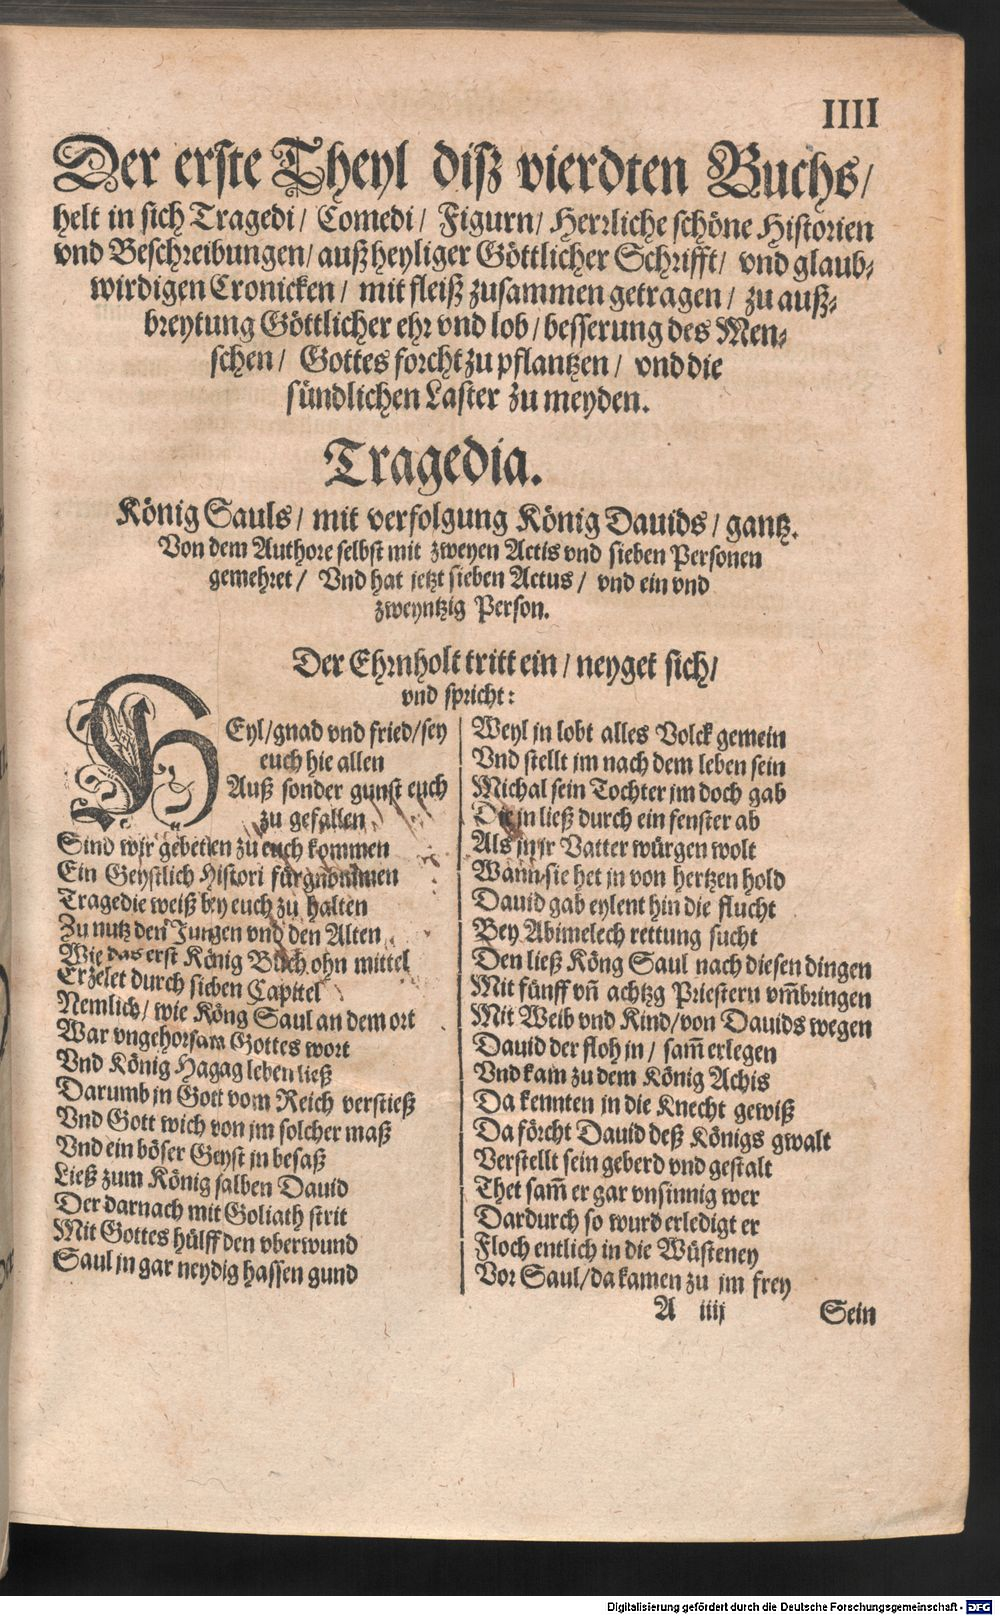 IIII
Der erste Theyl diß vierdten Buchs/
helt in sich Tragedi/ Comedi/ Figurn/ Herrliche schöne Historien
vnd Beschreibungen/ auß heyliger Göttlicher Schrifft/ vnd glaub-
wirdigen Cronicken/ mit fleiß zusammen getragen/ zu auß-
breytung Göttlicher ehr vnd lob/ besserung des Men-
schen/ Gottes forcht zu pflantzen/ vnd die
sündlichen Laster zu meyden.
Tragedia.
König Sauls/ mit verfolgung König Dauids/ gantz.
Von dem Authore selbst mit zweyen Actis vnd sieben Personen
gemehret/ Vnd hat jetzt sieben Actus/ vnd ein vnd
zweyntzig Person.
Der Ehrnholt tritt ein/ neyget sich/
vnd spricht:
HEyl/gnad vnd fried/sey
euch hie allen
Auß sonder gunst euch
zu gefallen
Sind wir gebetten zu euch kommen
Ein Geystlich Histori fürgnommen
Tragedie weiß bey euch zu halten
Zu nutz den Jungen vnd den Alten
Wie das erst König Buch ohn mittel
Erzelet durch sieben Capitel
Nemlich/ wie Köng Saul an dem ort
War vngehorsam Gottes wort
Vnd König Hagag leben ließ
Darumb jn Gott vom Reich verstieß
Vnd Gott wich von jm solcher maß
Vnd ein böser Geyst jn besaß
Ließ zum König salben Dauid
Der darnach mit Goliath strit
Mit Gottes hülff den vberwund
Saul jn gar neydig hassen gund
Weyl jn lobt alles Volck gemein
Vnd stellt jm nach dem leben sein
Michal sein Tochter jm doch gab
Die jn ließ durch ein fenster ab
Als jn jr Vatter würgen wolt
Wann sie het jn von hertzen hold
Dauid gab eylent hin die flucht
Bey Abimelech rettung sucht
Den ließ Köng Saul nach diesen dingen
Mit fünff vn̄ achtzg Priestern vm̄bringen
Mit Weib vnd Kind/von Dauids wegen
Dauid der floh jn/ sam̄ erlegen
Vnd kam zu dem König Achis
Da kennten jn die Knecht gewiß
Da förcht Dauid deß Königs gwalt
Verstellt sein geberd vnd gestalt
Thet sam̄ er gar vnsinnig wer
Dardurch so wurd erledigt er
Floch entlich in die Wüsteney
Vor Saul/da kamen zu jm frey
A iiij Sein
Digitalisierung gefördert durch die Deutsche Forschungsgemeinschaft - DFG